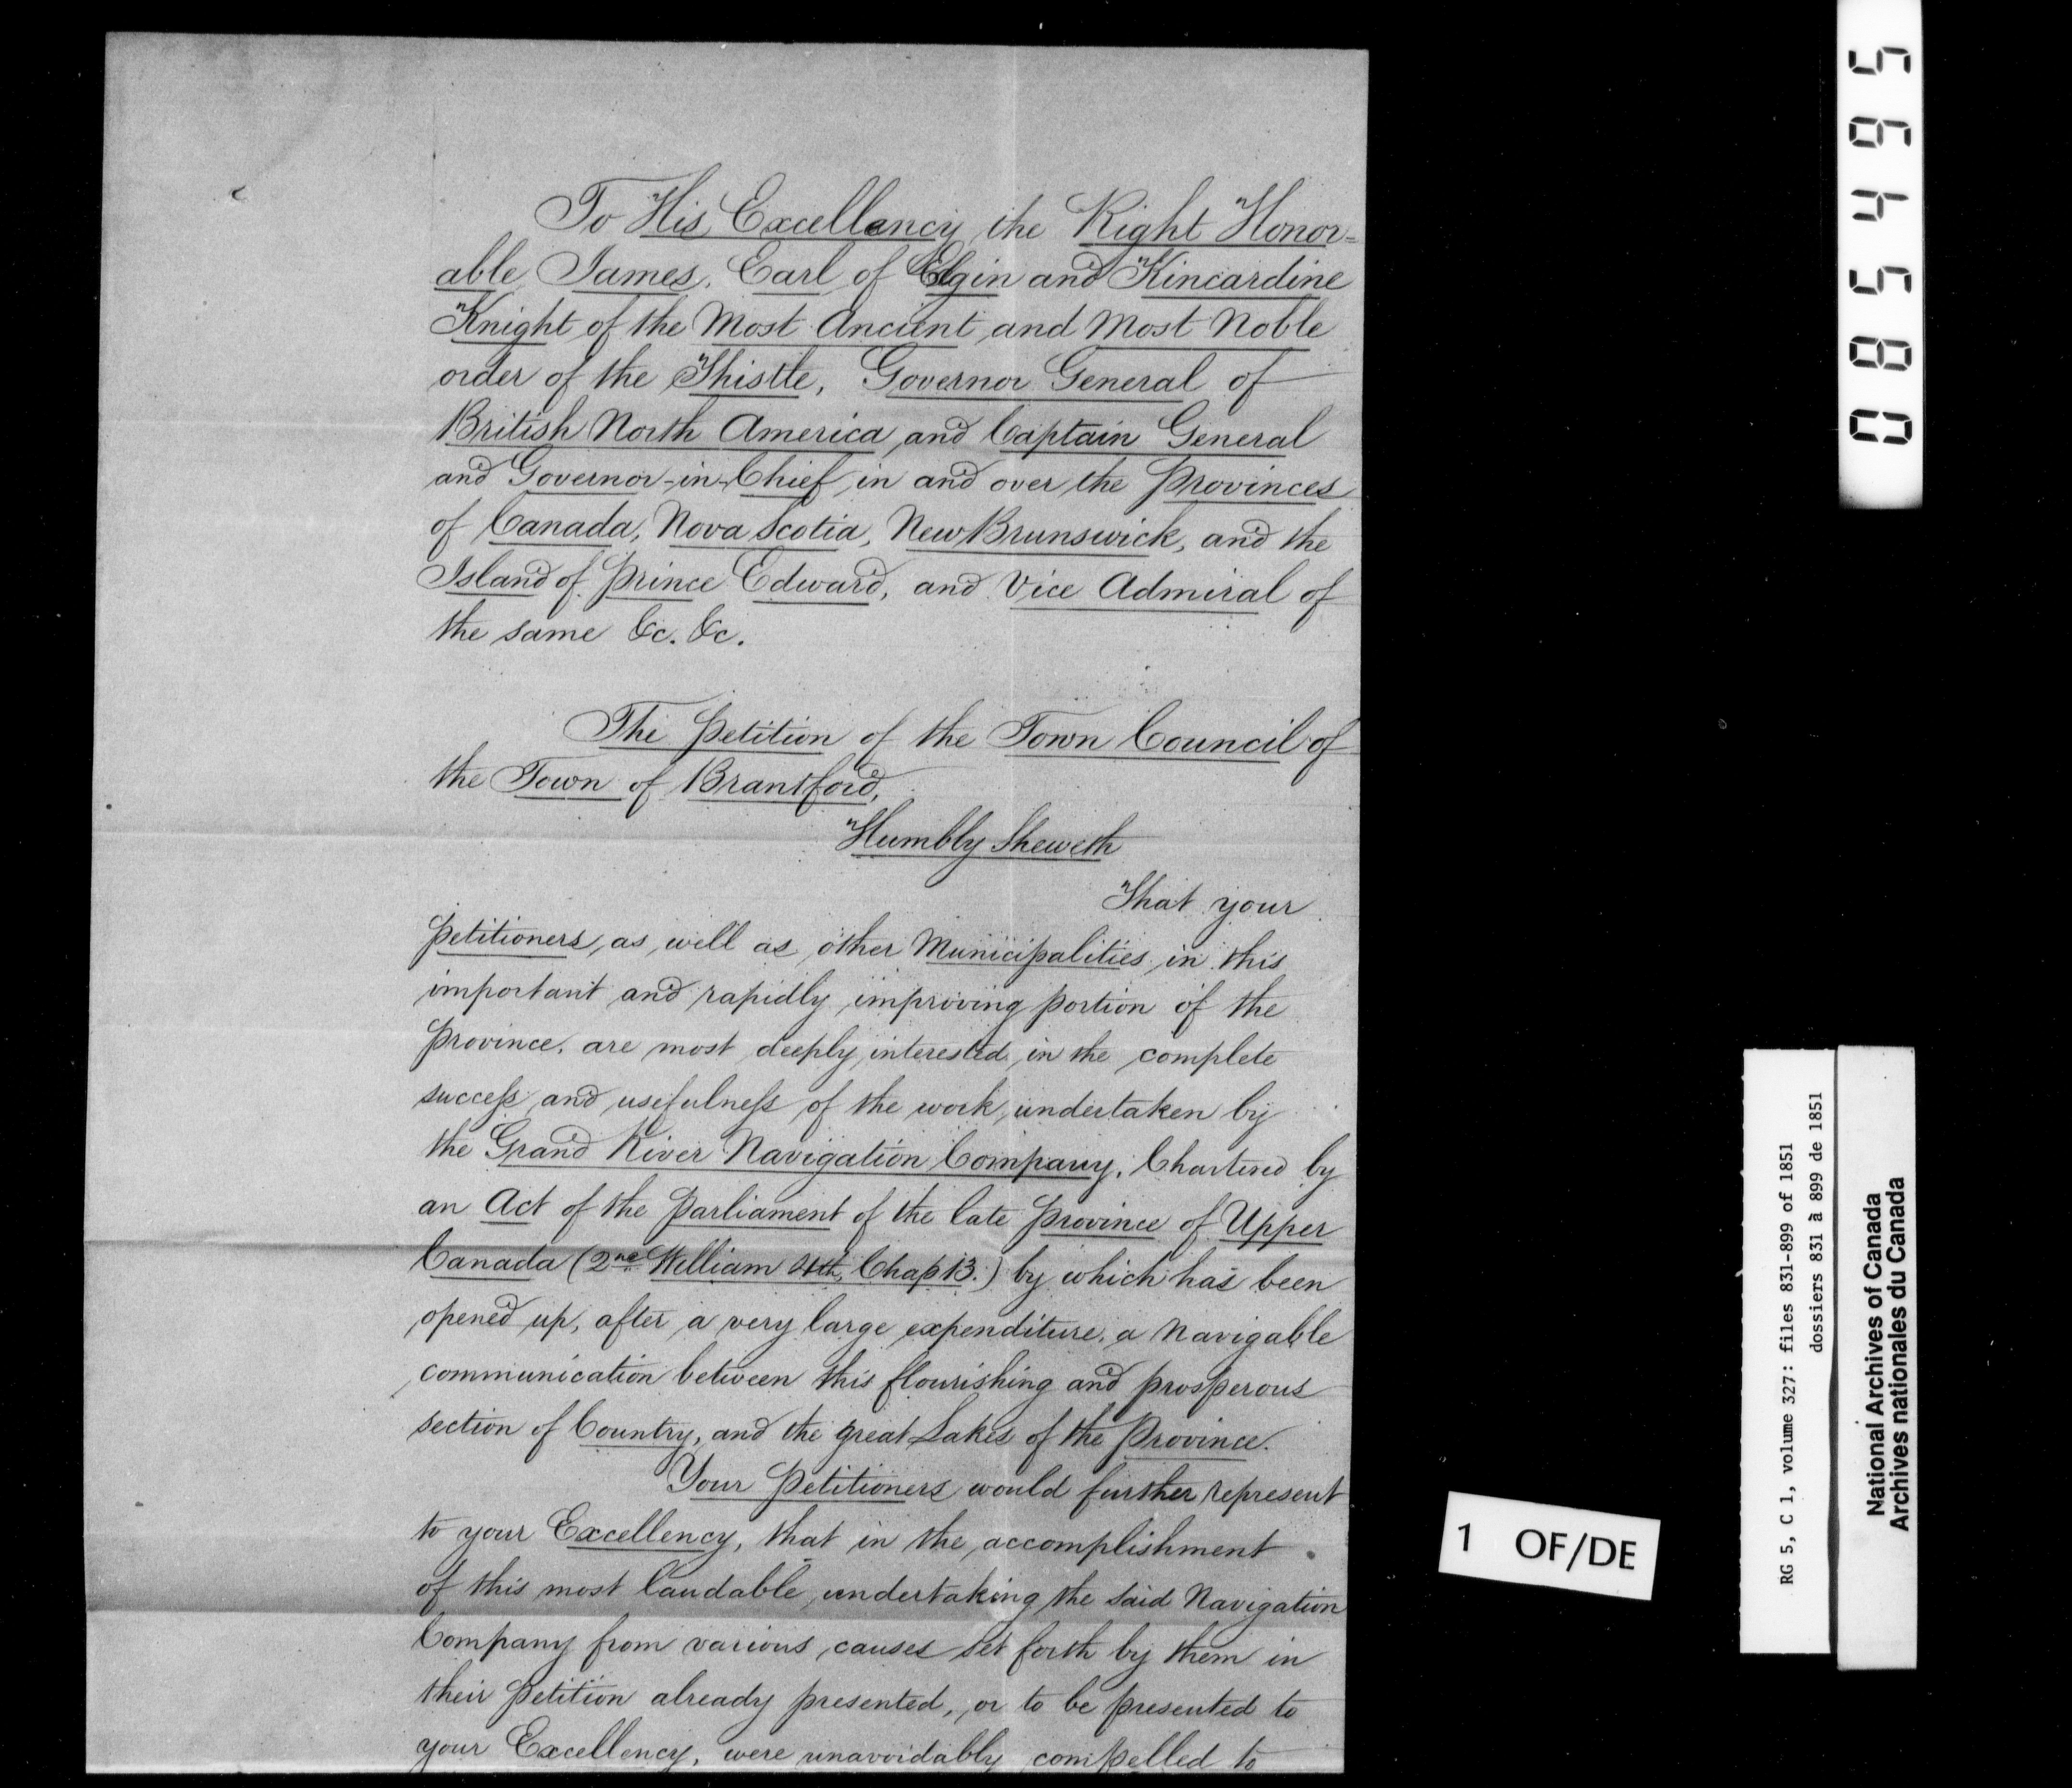 To His Excellency the Right Honor=
able James, Earl of Elgin and Kincardine
Knight of the Most Ancient and Most Noble
order of the Thistle, Governor General of
British North America, and Captain General
and Governor-in-Chief in and over the Provinces
of Canada, Nova Scotia, New Brunswick, and the
Island of Prince Edward, and Vice Admiral of
the same &c. &c.
The Petition of the Town Council of
the Town of Brantford,
Humbly Sheweth
That your
Petitioners, as well as other Municipalities in this
important and rapidly improving portion of the
Province, are most deeply interested in the complete
success and usefulness of the work undertaken by
the Grand River Navigation Company, Chartered by
an Act of the Parliament of the late Province of Upper
Canada (2nd William 4th, Chap 13.) by which has been
opened up, after a very large expenditure, a navigable
communication between this flourishing and prosperous
section of Country, and the great Lakes of the Province.
Your Petitioners would further represent
to your Excellency, that in the accomplishment
of this most laudable undertaking the said Navigation
Company from various causes set forth by them in
their Petition already presented, or to be presented to
your Excellency, were unavoidably compelled to
085495
1 OF/DE
RG 5, C 1, volume 327: files 831-899 of 1851
dossiers 831 à 899 de 1851
National Archives of Canada
Archives nationales du Canada